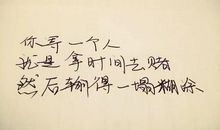 你寻一个人
就是拿时间去赌
然后输得一塌糊涂